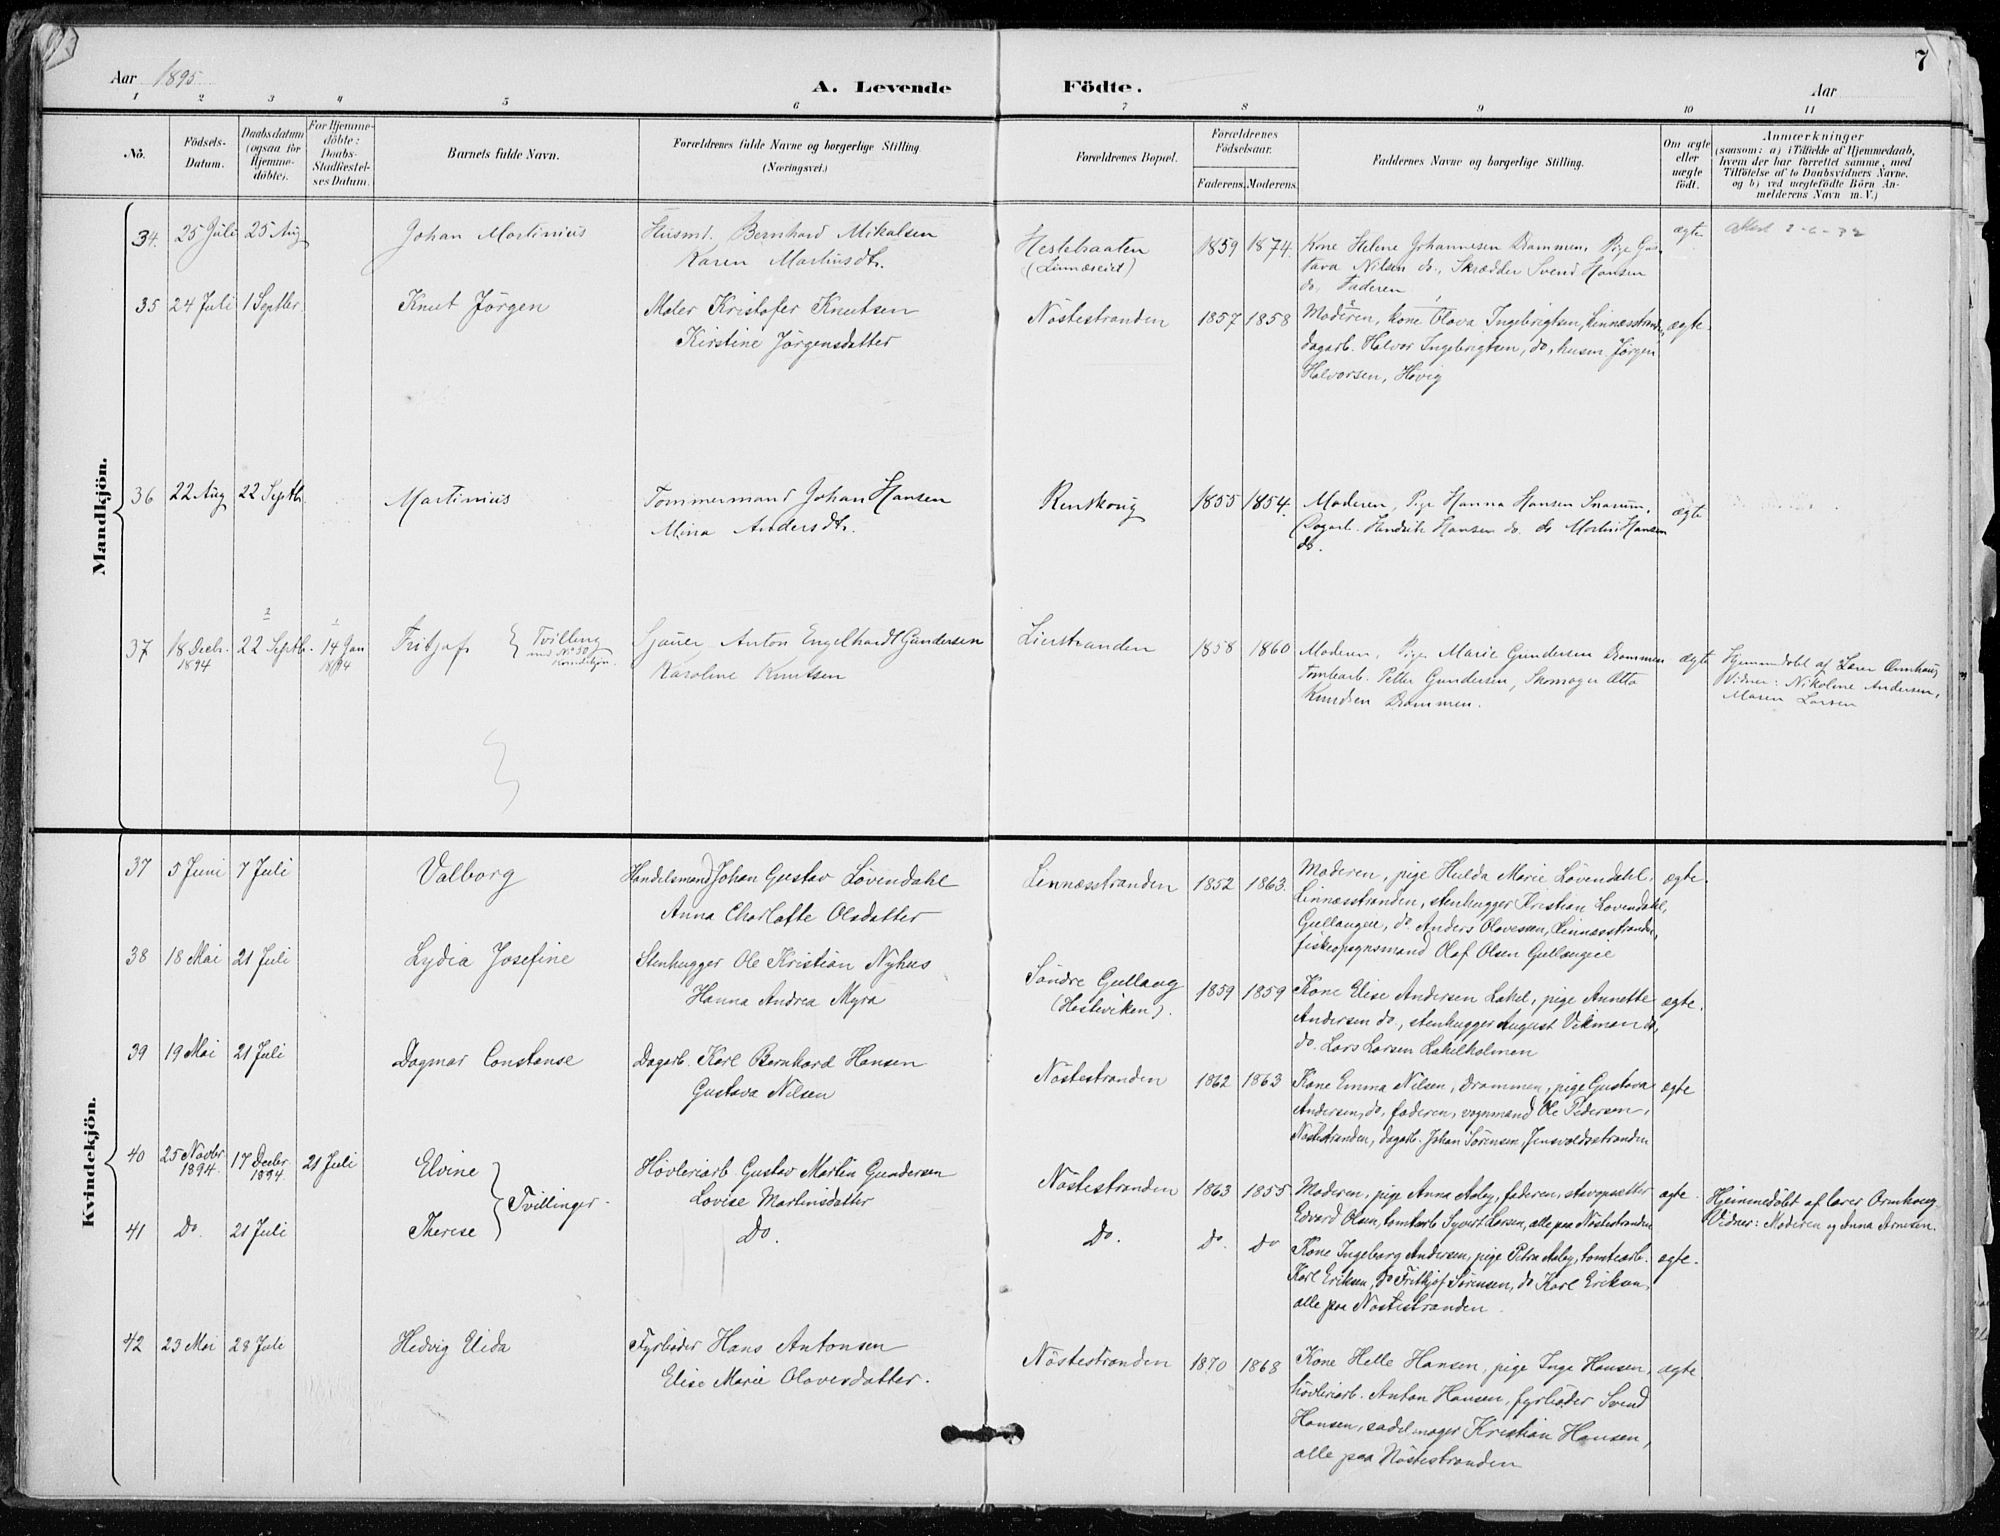 7
Aar 1895
A. Levende Födte.
Aar
1 2 3 4 5 6 7 8 9 10 11
No.
Födsels-
Datum.
Daabsdatum
(ogsaa for
Hjemme-
döbte).
For Hjemme-
döbte:
Daabs-
Stadfæstel-
ses Datum.
Barnets fulde Navn.
Forældrenes fulde Navne og borgerlige Stilling.
(Næringsvei.)
Forældrenes Bopæl.
Forældrenes
Födselsaar.
Faderens. Moderens.
Faddernes Navne og borgerlige Stilling.
Om ægte
eller
uægte
födt.
Anmærkninger
(saasom: a) i Tilfælde af Hjemmedaab,
hvem der har forrettet samme, med
Tilföielse af to Daabsvidners Navne.
og b) ved uægtefödte Börn An-
melderens Navn m. V.)
Mandkjön.
34. 25 Juli 25 Aug Johan Martinius
Husmd. Bernhard Mikalsen
Karen Martinsdtr.
Hestebraaten
(Linnæseiet)
1859 1874.
Kone Helene Johannesen Drammen, Pige Gus-
tava Nilsen do., Skrædder Svend Hansen
do. Faderen
ægte
2-6-32
35 24 Juli 1 Septbr Knut Jörgen
Maler Kristofer Knutsen
Kirstine Jörgensdatter
Nöstestranden
1857 1858
Moderen, kone Olava Ingebrigtsen, Linnæsstranden,
dagarb. Halvor Ingebrigtsen, do, husm. Jörgen
Halvorsen, Hövig
ægte
36 22 Aug 22 Septb. Martinius
Tömmermand Johan Hansen
Mina Andersdtr.
Renskoug
1855 1854.
Moderen, Pige Hanna Hansen Snarum,
Dagarb. Hendrik Hansen do. do Martin Hansen
do.
ægte
37 18 Decbr. 1894 22 Septb. 14 Jan 18/94 Fritjof
Tvilling
med No 50
Kvindekjön.
Sjauer Anton Engelhardt Gundersen
Karoline Knutsen
Lierstranden
1858 1860
Moderen, Pige Marie Gundersen Drammen
Tomtearb. Petter Gundersen, Skomager Otto
Knudsen Drammen.
ægte
Hjemmedöbt af Lærer Ormhaug
Vidner: Nikoline Andersen,
Maren Larsen
Kvindekjön.
37 5 Juni 7 Juli Valborg
Handelsmand Johan Gustav Lövendahl
Anna Charlotte Olsdatter
Linnæsstranden
1852 1863.
Moderen, pige Hulda Marie Lövendahl,
Linnæsstranden, stenhugger Kristian Lövendahl,
Gullaugeie, do. Anders Olavesen, Linnæsstranden,
fiskeopsynsmand Olaf Olsen Gullaugeie
ægte.
38 18 Mai 21 Juli Lydia Josefine
Stenhugger Ole Kristian Nyhus
Hanna Andrea Myra
Söndre Gullaug
(Hesteviken).
1859 1859
Kone Elise Andersen Lahel, pige Annette
Andersen do., stenhugger August Vikman do,
do. Lars Larsen Lahelholmen
ægte.
39 19 Mai 21 Juli Dagmar Constanse
Dagarb. Karl Bernhard Hansen
Gustava Nilsen
Nöstestranden
1862 1863
Kone Emma Nilsen, Drammen, pige Gustava
Andersen, do, faderen, vognmand Ole Pedersen,
Nöstestranden, dagarb. Johan Sörensen, Jensvoldsstranden
ægte
40 25 Novbr 1894. 17 Decbr 1894. 21 Juli Elvine
Tvillinger
Hövleriarb. Gustav Martin Gundersen
Lovise Martinsdatter
Nöstestranden
1863 1855
Moderen, pige Anna Aaby, faderen, stavopsætter
Edvard Olsen, tomtarb. Syvert Larsen, alle paa Nöstestranden
ægte.
Hjemmedöbt af lærer Ormhaug.
Vidner: Moderen og Anna Arnesen.
41 Do. 21 Juli Therese
Do.
Do.
Do. Do
Kone Ingeborg Andersen, pige Petra Aaby, tomtearb.
Karl Eriksen, do Fritkjof Sörensen, do Karl Eriksen,
alle paa Nöstestranden.
ægte.
42 23 Mai 28 Juli Hedvig Elida
Fyrböder Hans Antonsen
Elise Marie Olaversdatter.
Nöstestranden
1870 1868
Kone Helle Hansen, pige Inga Hansen,
hövleriarb. Anton Hansen, fyrböder Svend
Hansen, sadelmager Kristian Hansen,
alle paa Nöstestranden
ægte.